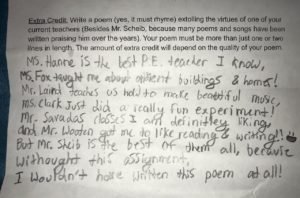 Extra Credit. Write a poem (yes, it must rhyme) extolling the virtues of one of your
current teachers (Besides Mr. Scheib, because many poems and songs have been
written praising him over the years). Your poem must be more than just one or two
lines in length. The amount of extra credit will depend on the quality of your poem.
MS. Hanne IS the best P.E. teacher I know,
MS. Fox taught me about different buildings & homes!
Mr. Laird teaches us how to make beautiful music,
ms. Clark Just did a really fun experiment!
Mr. Savadas classes I am definitley liking,
and Mr. Wooten got me to like reading & writing!!
But Mr. Sheib IS the best of them all, because
withought this assignment,
I Wouldn't have written this poem at all!